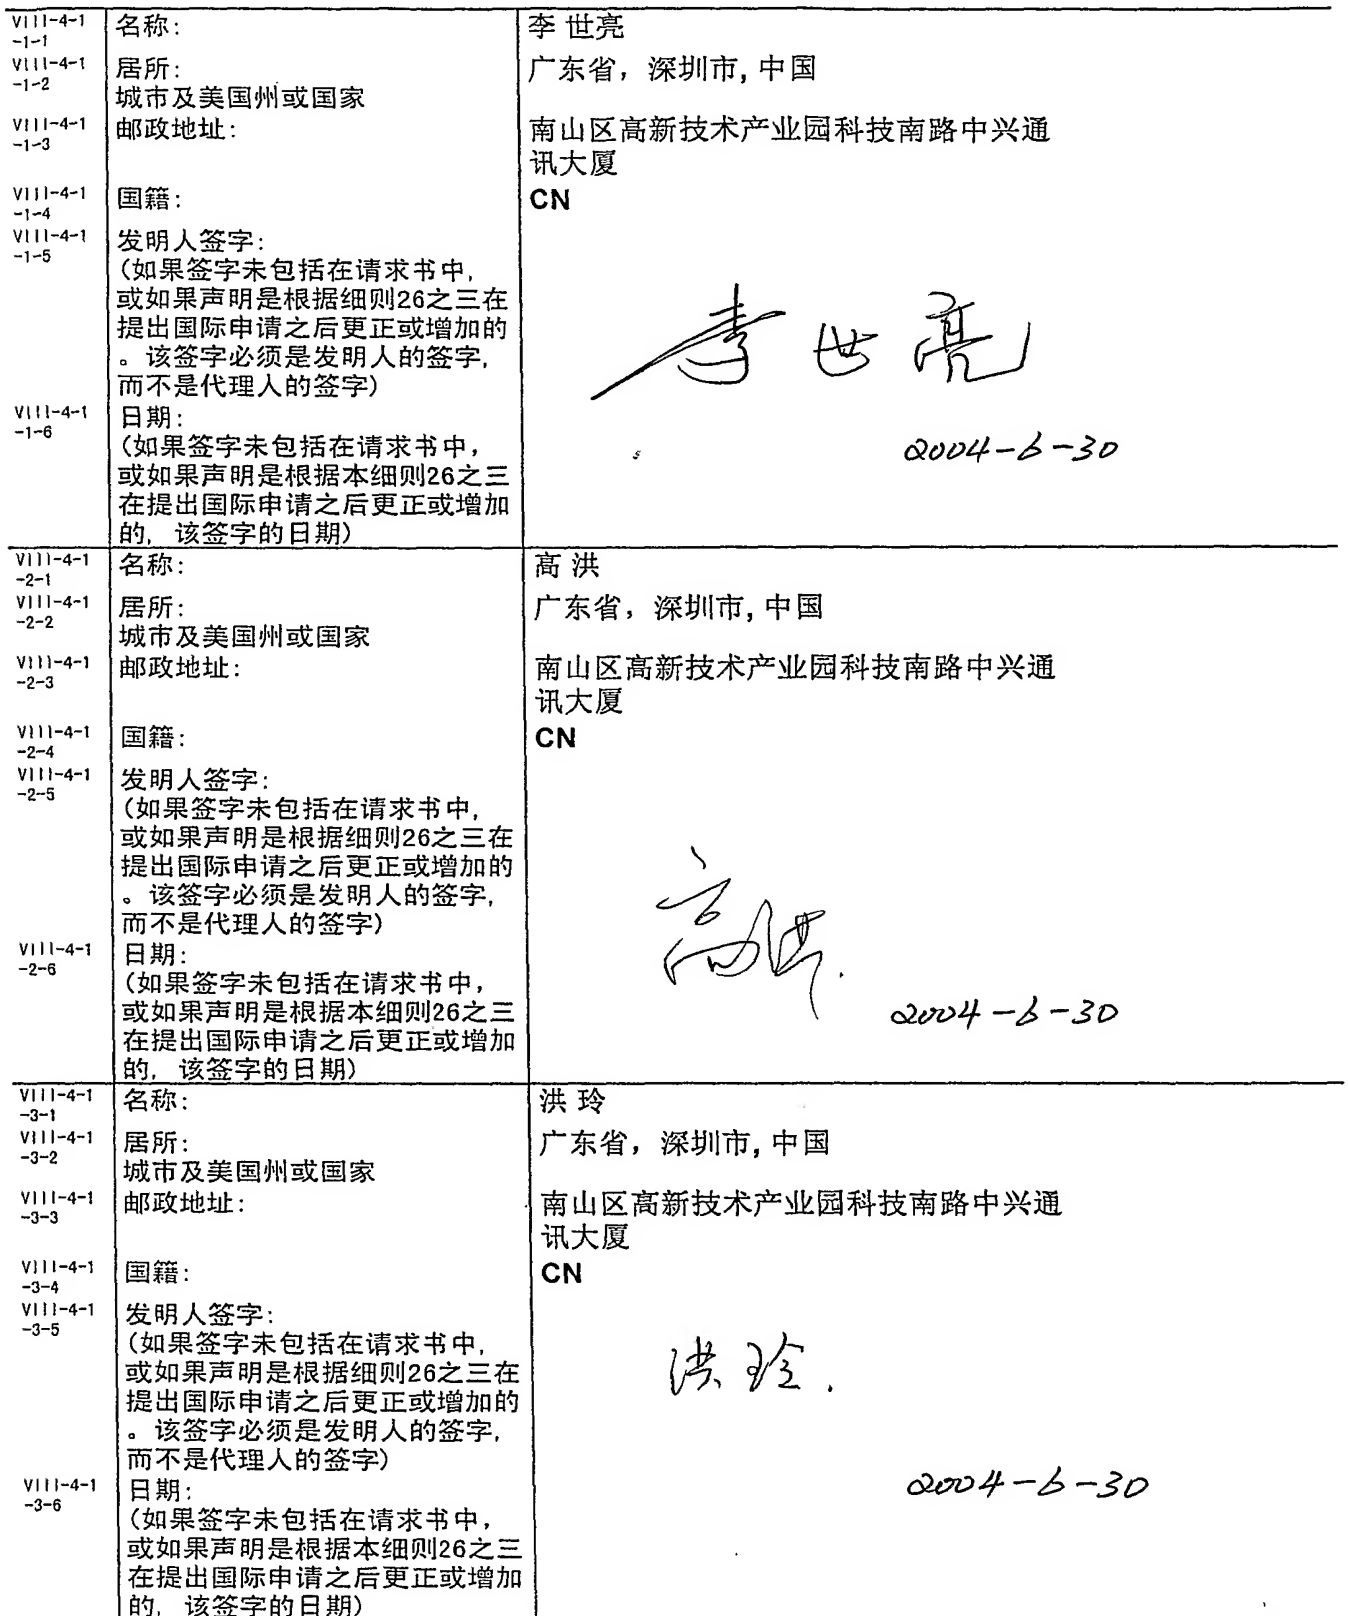 VIII-4-1 名称: 李 世亮
-1-1
VIII-4-1 居所: 广东省，深圳市, 中国
-1-2 城市及美国州或国家
VIII-4-1 邮政地址: 南山区高新技术产业园科技南路中兴通
-1-3 讯大厦
VIII-4-1 国籍: CN
-1-4
VIII-4-1 发明人签字:
-1-5 (如果签字未包括在请求书中,
或如果声明是根据细则26之三在
提出国际申请之后更正或增加的
。该签字必须是发明人的签字,
而不是代理人的签字)
李世亮
VIII-4-1 日期:
-1-6 (如果签字未包括在请求书中，
或如果声明是根据本细则26之三
在提出国际申请之后更正或增加
的, 该签字的日期)
2004-6-30
VIII-4-1 名称: 高 洪
-2-1
VIII-4-1 居所: 广东省，深圳市, 中国
-2-2 城市及美国州或国家
VIII-4-1 邮政地址: 南山区高新技术产业园科技南路中兴通
-2-3 讯大厦
VIII-4-1 国籍: CN
-2-4
VIII-4-1 发明人签字:
-2-5 (如果签字未包括在请求书中,
或如果声明是根据细则26之三在
提出国际申请之后更正或增加的
。该签字必须是发明人的签字,
而不是代理人的签字)
高洪.
VIII-4-1 日期:
-2-6 (如果签字未包括在请求书中，
或如果声明是根据本细则26之三
在提出国际申请之后更正或增加
的, 该签字的日期)
2004-6-30
VIII-4-1 名称: 洪 玲
-3-1
VIII-4-1 居所: 广东省，深圳市, 中国
-3-2 城市及美国州或国家
VIII-4-1 邮政地址: 南山区高新技术产业园科技南路中兴通
-3-3 讯大厦
VIII-4-1 国籍: CN
-3-4
VIII-4-1 发明人签字:
-3-5 (如果签字未包括在请求书中,
或如果声明是根据细则26之三在
提出国际申请之后更正或增加的
。该签字必须是发明人的签字,
而不是代理人的签字)
洪玲.
VIII-4-1 日期:
-3-6 (如果签字未包括在请求书中，
或如果声明是根据本细则26之三
在提出国际申请之后更正或增加
的, 该签字的日期)
2004-6-30